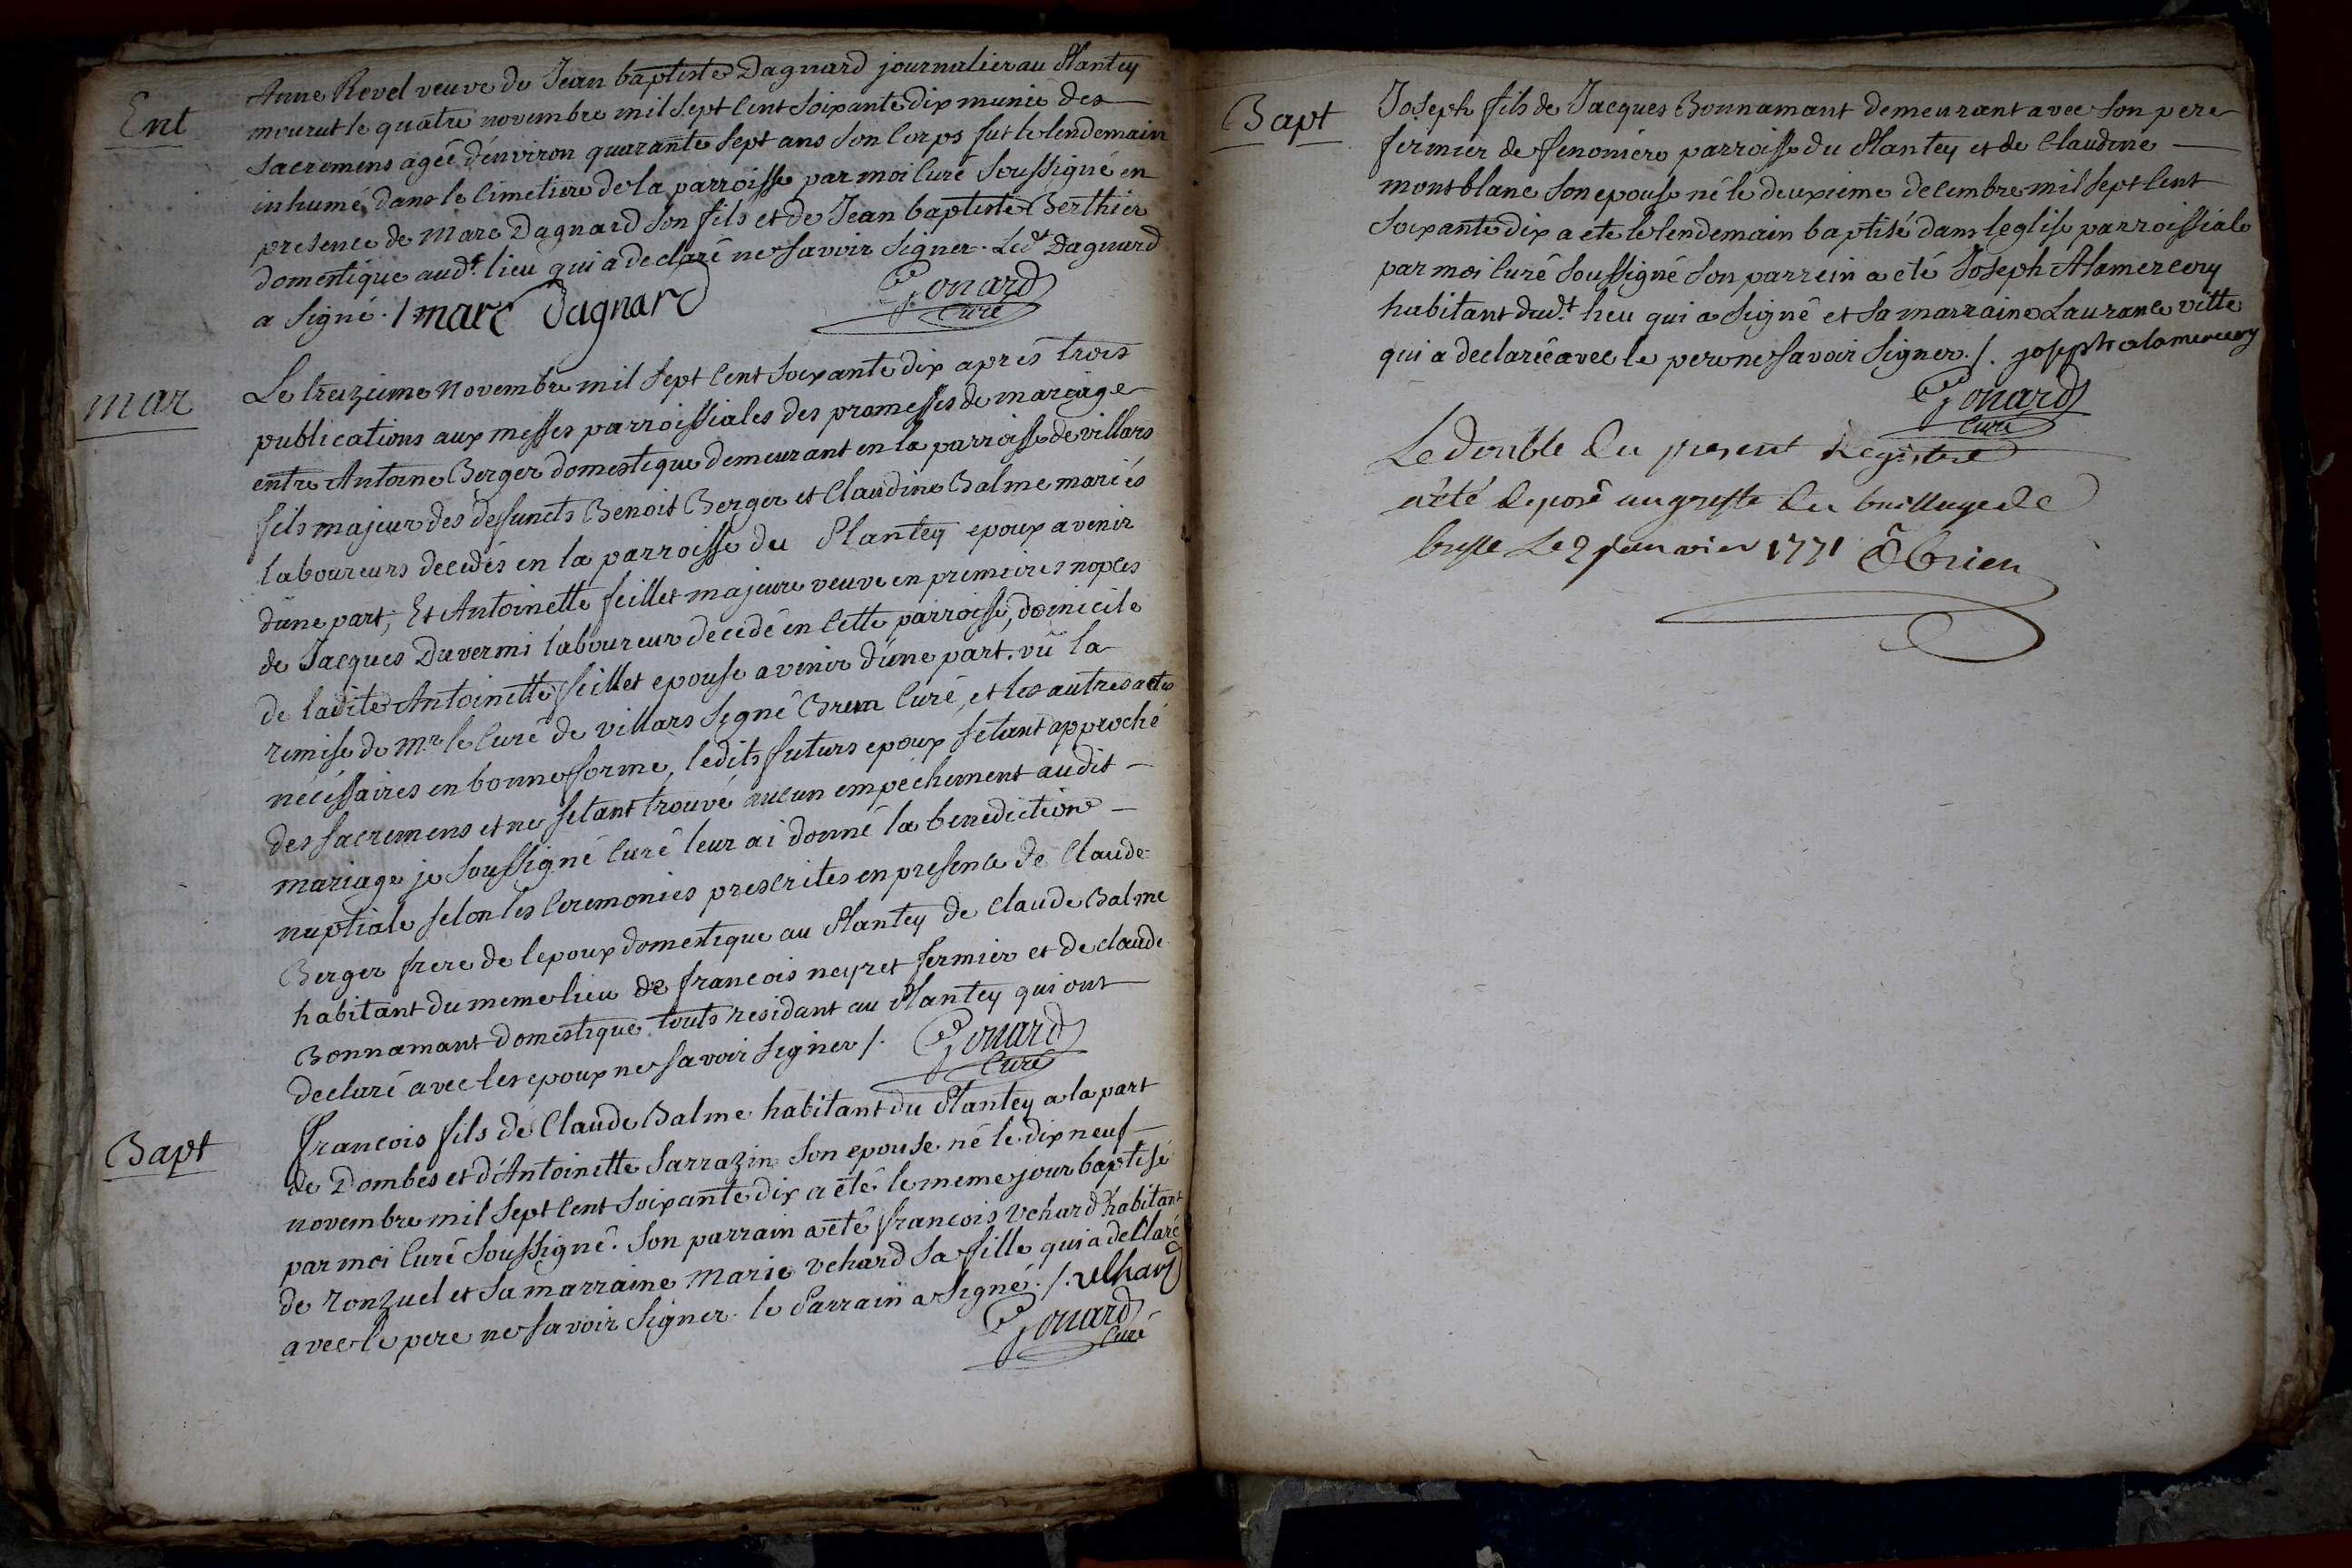 Ent
Anne Revel veuve de Jean baptiste Dagnard journalier au Plantey
mourut le quatre novembre mil sept cent soixante dix munie des
sacremens agée d'environ quarante sept ans son corps fut le lendemain
inhumé dans le cimetiere de la parroisse par moi curé soussigné en
presence de Marc Dagnard son fils et de Jean baptiste Berthier
domestique aud.t lieu qui a declaré ne savoir signer. Led.t Dagnard
a signé. / marc Dagnard
Gonard
curé
mar
Le treizieme novembre mil sept cent soixante dix aprés trois
publications aux messes parroissiales des promesses de mariage
entre Antoine Berger domestique demeurant en la parroisse de villars
fils majeur des deffuncts Benoit Berger et Claudine Balme mariés
laboureurs decedés en la parroisse du Plantey epoux a venir
d'une part; Et Antoinette feillet majeure veuve en premieres nopces
de Jacques Duvermi laboureur decedé en cette parroisse, domicile
de ladite Antoinette feillet epouse a venir d'une part. vû la
remise de M.r le Curé de villars signé curé, et les autres actes
nécéssaires en bonne forme, ledits futurs epoux s'etant approché
des sacremens et ne s'etant trouvé aucun empechement audit
mariage je soussigné curé leur ai donné la benediction
nuptiale selon les ceremonies prescrites en presence de Claude
Berger frere de l'epoux domestique au Plantey de Claude Balme
habitant du meme lieu de francois neyret fermier et de claude
Bonnamant domestique touts residant au Plantey qui ont
declaré avec les epoux ne savoir signer /.
Gonard
Curé
Bapt
francois fils de Claude Balme habitant du Plantey a la part
de Dombes et d'Antoinette Sarrazin son epouse né le dix neuf
novembre mil sept cent soixante dix a eté le meme jour baptisé
par moi curé soussigné. Son parrain a eté francois Vchard habitant
de ronzuel et sa marraine Marie vchard sa fille qui a declaré
avec le pere ne savoir signer. le Parrain a signé. /. uchard
Gonard
curé
Bapt
Joseph fils de Jacques Bonnamant demeurant avec son pere
fermier de fenoniere parroisse du Plantey et de Claudine
montblanc son epouse né le deuxieme decembre mil sept cent
soixante dix a eté le lendemain baptisé dans leglise parroissiale
par moi curé soussigné son parrein a eté Joseph Alamercery
habitant dud.t lieu qui a signé et sa marraine Laurance vitte
qui a declarée avec le pere ne savoir signer. /. joseph alamercery
Gonard
curé
Le double du present Registre
a été deposé au greffe du bailliage de
bresse Le 2 janvier 1771 Obrien